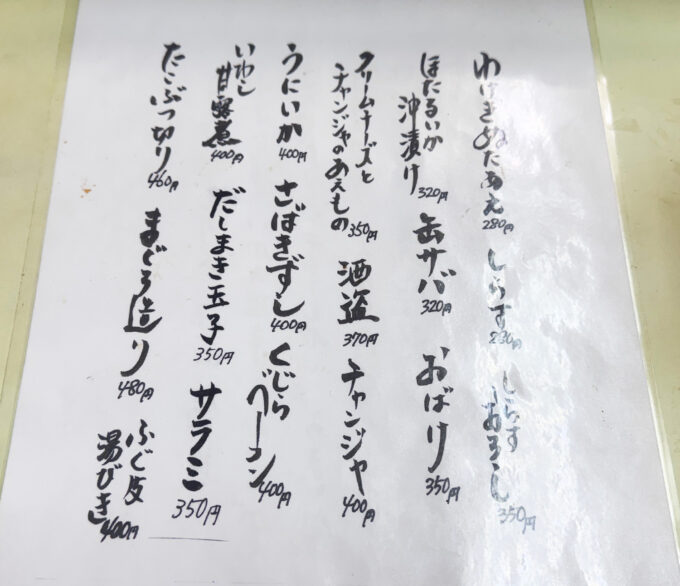 わけぎぬたあえ
280円
しらす
280円
しらす
おろし
350円
ほたるいか
沖漬け
320円
缶サバ
320円
おばけ
350円
クリームチーズと
チャンジャのあえもの
350円
酒盗
370円
チャンジャ
400円
うにいか
400円
さばきずし
400円
くじら
ベーコン
400円
いわし
甘露煮
400円
だしまき玉子
350円
サラミ
350円
たこぶつ切り
460円
まぐろ造り
480円
ふぐ皮
湯びき
400円